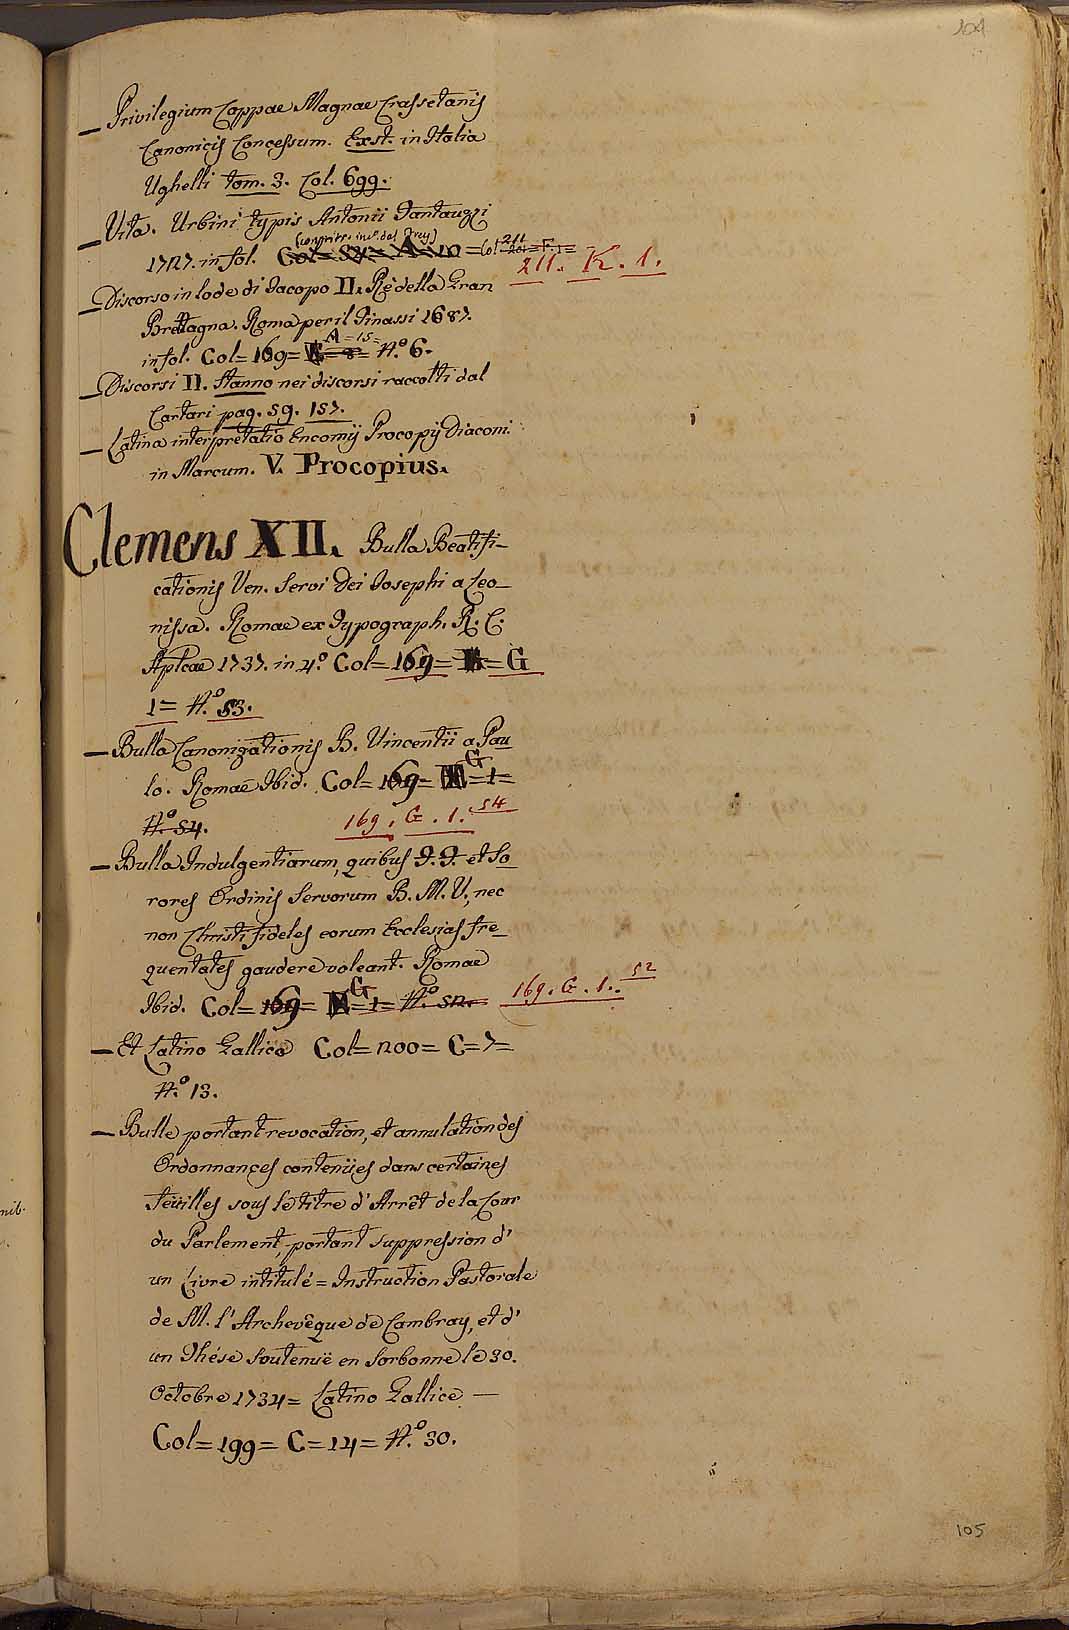 104
— Privilegium Cappae Magnae Crassetanis
Canonicis Concessum. Exst. in Italia
Ughelli tom. 3. Col. 699.
— Vita. Urbini typis Antonii Fantauzzi
1727. in fol. Col = = Col 211
211. K. 1.
— Discorso in lode di Jacopo II. Rè della Gran
Brettagna. Roma per il Ginassi 1687.
A = 15 =
in fol. Col = 169 = = 8 = N.° 6.
— Discorsi II. Stanno nei discorsi raccolti dal
Cartari pag. 59. 157.
— Latina interpretatio Encomij Procopij Diaconi
in Marcum. V. Procopius.
Clemens XII. Bulla Beatifi-
cationis Ven. Servi Dei Josephi a Leo-
nissa. Romae ex Typograph. R. C.
Aplcae 1737. in 4.° Col = 169 = = G
1 = N.° 53.
— Bulla Canonizationis B. Vincentii a Pau
lo. Romae Ibid. Col = 169 = G = 1 =
N.° 54. 169. G. 1. 54
— Bulla Indulgentiarum, quibus F.F. et So
rores Ordinis Servorum B. M. V., nec
non Christi fideles eorum Ecclesias fre_
quentates gaudere valeant. Romae
Ibid. Col = 169 = G = 1 = N.° 52. = 169. G. 1. 52
— Et Latino Gallica Col = 200 = C = 7 =
N.° 13.
— Bulle portant revocation, et annulation des
Ordonnances contenües dans certaines
feüilles sous le titre d'Arrêt de la Cour
du Parlement, portant suppression d'
un Livre intitulé = Instruction Pastorale
de M. l'Archevêque de Cambray, et d'
un Thése soutenuë en Sorbonne le 30.
Octobre 1734 = Latino Gallice —
Col = 199 = C = 14 = N.° 30.
105